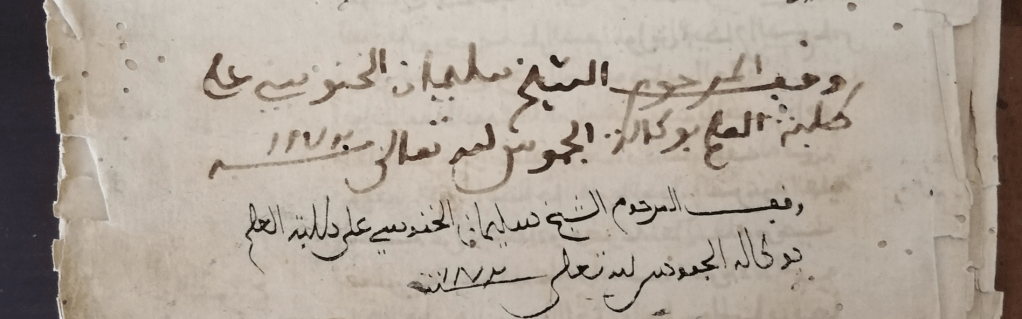 وقف المرحوم الشيخ سليمان الخنوسي على
طلبة العلم بوكالة الجموس لله تعالى سنة
وقف المرحوم الشيخ سليمان الخنوسي على طلبة العلم
بوكالة الجموس لله تعلى سنة